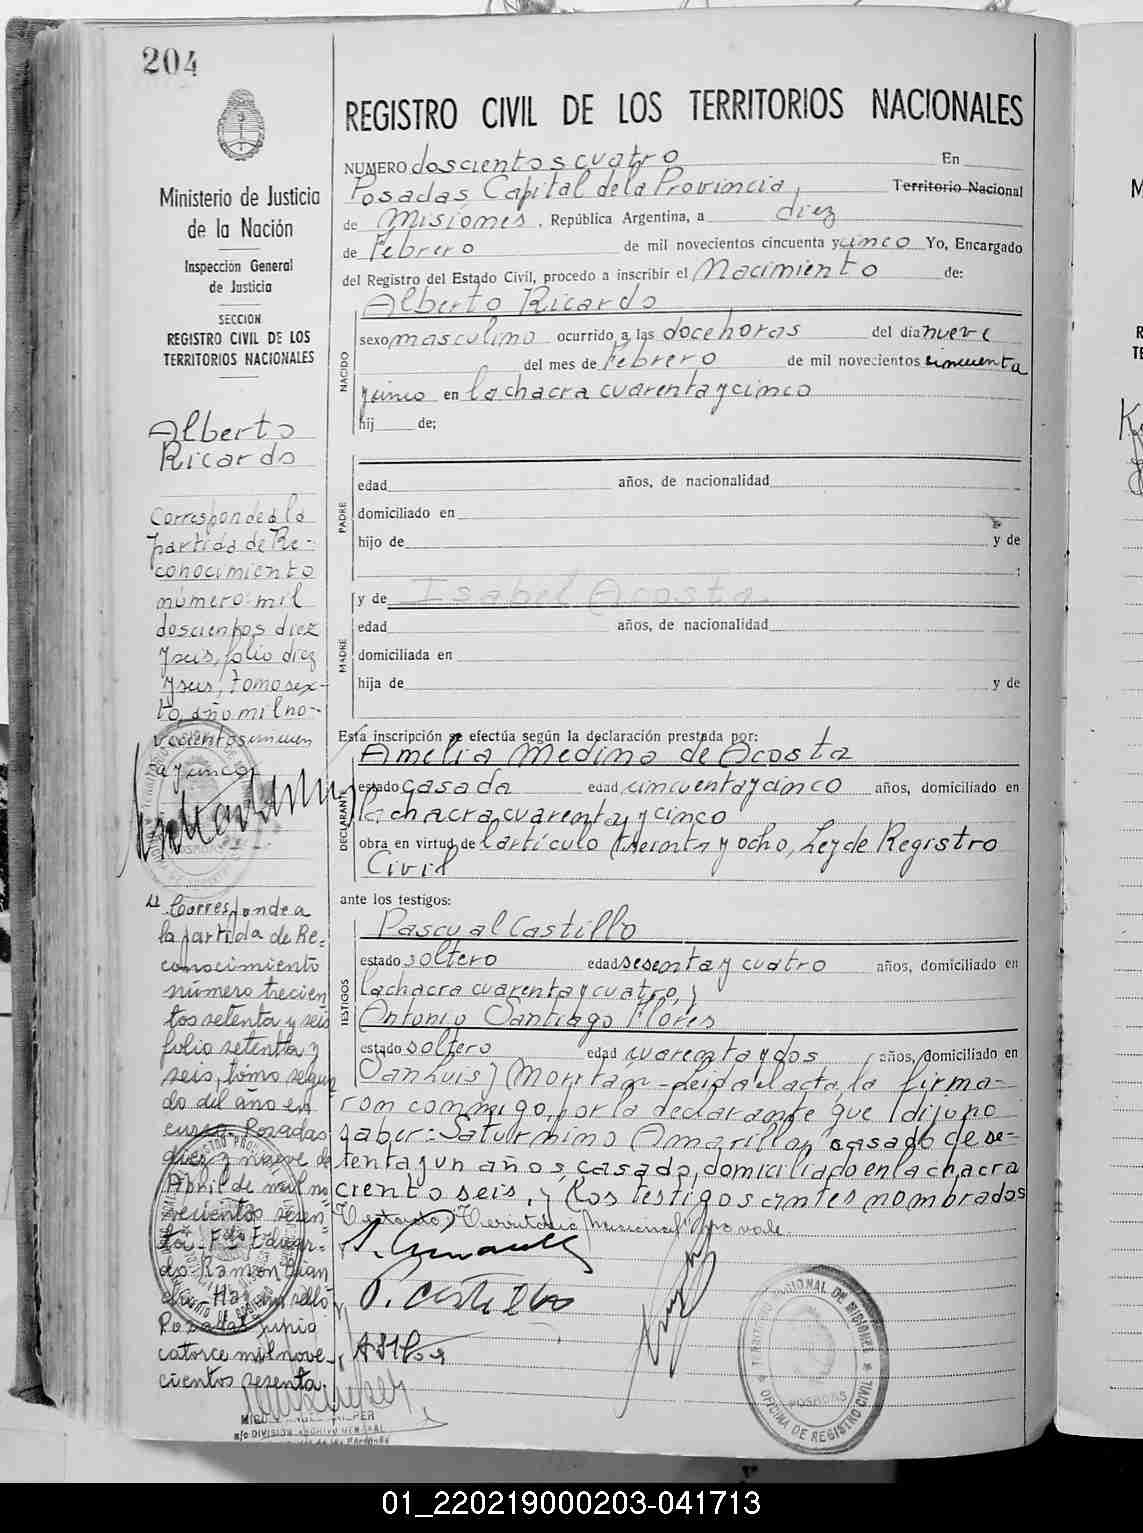 204
Ministerio de Justicia
de la Nación
Inspección General
de Justicia
SECCION
REGISTRO CIVIL DE LOS
TERRITORIOS NACIONALES
Alberto
Ricardo
Corresponde a la
partida de Re-
conocimiento
número mil
doscientos diez
y seis, folio diez
y seis, tomo sex-
to, año mil no-
vecientos cincuen
ta y cinco
Corresponde a
la partida de Re=
conocimiento
número trecien
tos setenta y seis
folio setenta y
seis, tomo segun
do del año en
curso. Posadas
diez y nueve de
Abril de mil no
vecientos sesen-
ta. Fdo Eduar-
do Ramon
Posadas junio
catorce mil nove-
cientos sesenta.
REGISTRO CIVIL DE LOS TERRITORIOS NACIONALES
NUMERO doscientos cuatro En
Posadas, Capital de la Provincia, Territorio Nacional
de Misiones, República Argentina, a diez
de Febrero de mil novecientos cincuenta y cinco Yo, Encargado
del Registro del Estado Civil, procedo a inscribir el Nacimiento de:
Alberto Ricardo
NACIDO
sexo masculino ocurrido a las doce horas del dia nueve
del mes de Febrero de mil novecientos cincuenta
y cinco en la chacra cuarenta y cinco
hij de;
PADRE
edad años, de nacionalidad
domiciliado en
hijo de y de
;
y de Isabel Acosta
MADRE
edad años, de nacionalidad
domiciliada en
hija de y de
Esta inscripción se efectúa según la declaración prestada por:
Amelia Medina de Acosta
DECLARANTE
estado casada edad cincuenta y cinco años, domiciliado en
la chacra cuarenta y cinco
obra en virtud de l artículo treinta y ocho, Ley de Registro
Civil
ante los testigos:
Pascual Castillo
TESTIGOS
estado soltero edad sesenta y cuatro años, domiciliado en
la chacra cuarenta y cuatro, y
Antonio Santiago Flores
estado soltero edad cuarenta y dos años, domiciliado en
San Luis y Moritan - Leida el acta, la firma-
ron conmigo, por la declarante que dijo no
saber: Saturnino Amarilla, casado de se-
tenta y un años, casado, domiciliado en la chacra
ciento seis, y los testigos antes nombrados
Testado "Territorio Nacional" no vale.
P. Castillo
TERRITORIO NACIONAL DE MISIONES
POSADAS
OFICINA DE REGISTRO CIVIL
01_220219000203-041713